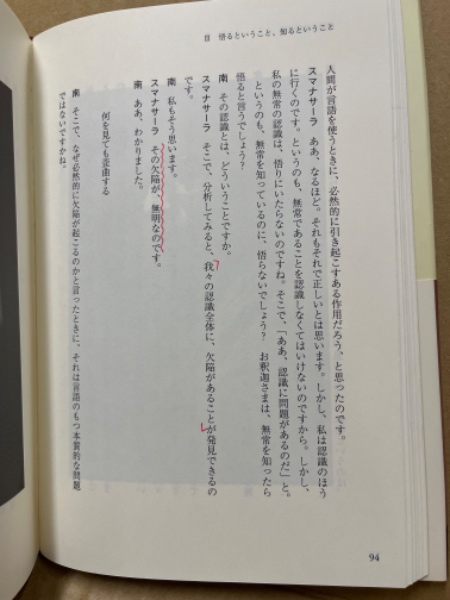 Ⅱ 悟るということ、知るということ
人間が言語を使うときに、必然的に引き起こすある作用だろう、と思ったのです。
スマナサーラ ああ、なるほど。それもそれで正しいとは思います。しかし、私は認識のほう
に行くのです。というのも、無常であることを認識しなくてはいけないのですから。しかし、
私の無常の認識は、悟りにいたらないのですね。そこで、「ああ、認識に問題があるのだ」と。
というのも、無常を知っているのに、悟らないでしょう? お釈迦さまは、無常を知ったら
悟ると言うでしょう?
南 その認識とは、どういうことですか。
スマナサーラ そこで、分析してみると、我々の認識全体に、欠陥があることが発見できるの
です。
南 私もそう思います。
スマナサーラ その欠陥が、無明なのです。
南 ああ、わかりました。
何を見ても歪曲する
南 そこで、なぜ必然的に欠陥が起こるのかと言ったときに、それは言語のもつ本質的な問題
ではないですかね。
94